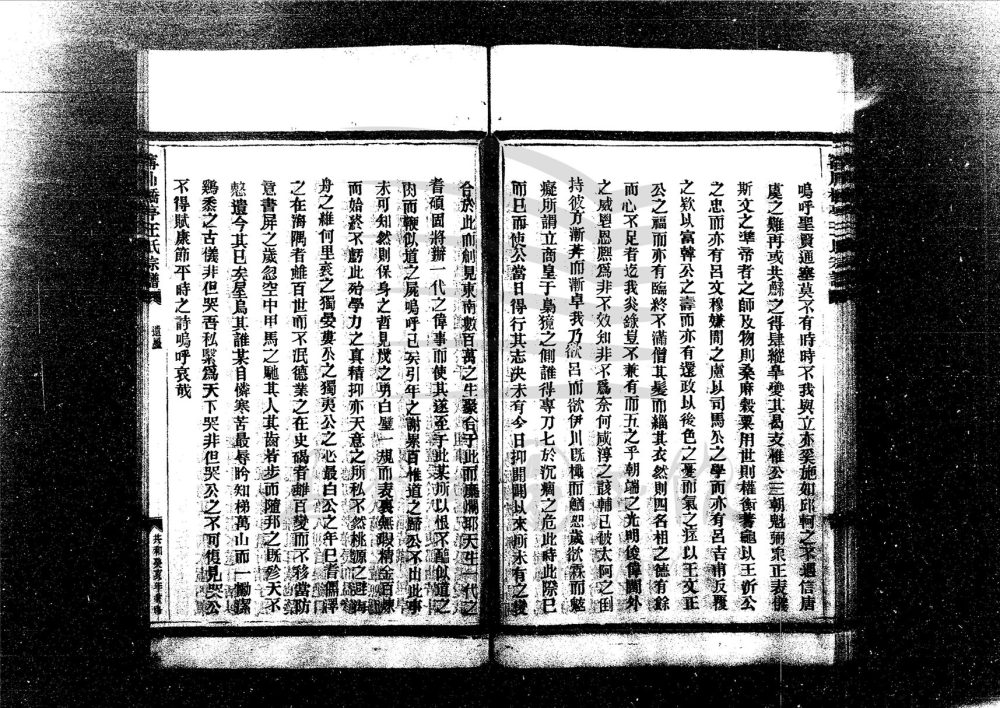 嗚呼聖賢通塞莫不有時時不我與立亦奚施如邱軻之不遇信唐
虞之難再或共醵之得肆縱皋夔其曷支惟公三朝魁弼東正表儀
斯文之準帝者之師及物則桑麻穀粟用世則權衡蓍龜以王沂公
之忠而亦有呂文穆嫌間之慮以司馬公之學而亦有呂吉甫反覆
之欺以富韓公之壽而亦有還政以後色之憂而氣之 以王文正
公之福而亦有臨終不滿僧其髮而緇其衣然則四名相之德有餘
而心不足者迄我炎錄豈不兼有而五之乎朝端之光明俊偉閫外
之威望恩熙為非不效知非不為奈何咸淳之該輔已被太阿之倒
持彼方漸莽而漸卓我乃欲呂而欲伊川既 而 怨歲欲霖而魃
癡所謂立商皇于梟獍之側誰得專刀七於沉痼之危此時此際已
而巳而使公當日得行其志决未有今日抑開闢以來所未有之變
合於此而創見東南數百萬之生聚合乎此而糜爛耶天生一代之
者碩固將辦一代之偉事而使其遂至于此某所以恨不 似道之
肉而鞭似道之屍嗚呼已矣引年之謝累百惟道之歸公不出此事
未可知然則保身之哲見幾之勇白璧一規而表裏無瑕精金百煉
而始終不虧此殆學力之真精抑亦天意之所私不然桃源之避海
舟之維何里衮之獨晏婁公之獨夷公之心最白公之年巳耆儒譯
之在海隅者雖百世而不泯德業之在史碣者雖百變而不移當防
意書屏之歲忽空中甲馬之馳其人其齒若步而隨邦之既殄天不
憖遺今其巳矣屋烏其誰某自憐寒苦最辱昑知梯萬山而一慟潔
鷄黍之古儀非但哭吾私緊為天下哭非但哭公之不可復見哭公
不得賦康節平時之詩嗚呼哀哉
汪氏宗譜
遺
共和癸亥年重修